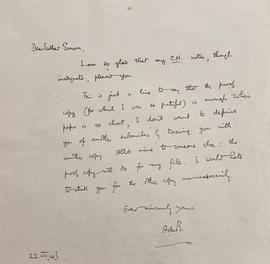 Dear Father Simon,
I am so glad that my C.H. notes, though
inadequate, please you.
This is just a line to say that the proof
copy (for which I was so grateful) is enough. When
paper is so short, I don't want to deprive
you of another submitter by taxing you with
another copy. Allot mine to someone else: the
proof copy will do for my files. I would hate
to stick you for the other copy unnecessarily
Ever sincerely yours
22.VII.43